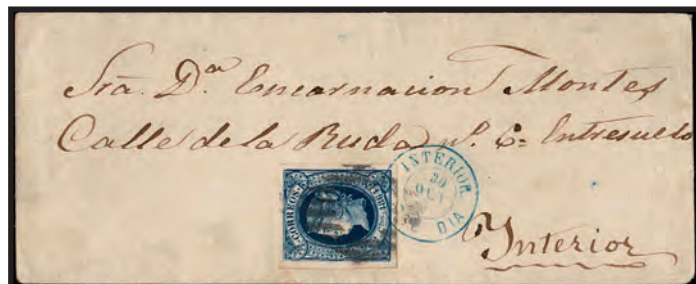 Sra. Dª Encarnacion Montes
Calle de la Ruda nº. 6= Entresuelo
CORREOS
INTERIOR
30
OCT
DIA
Interior